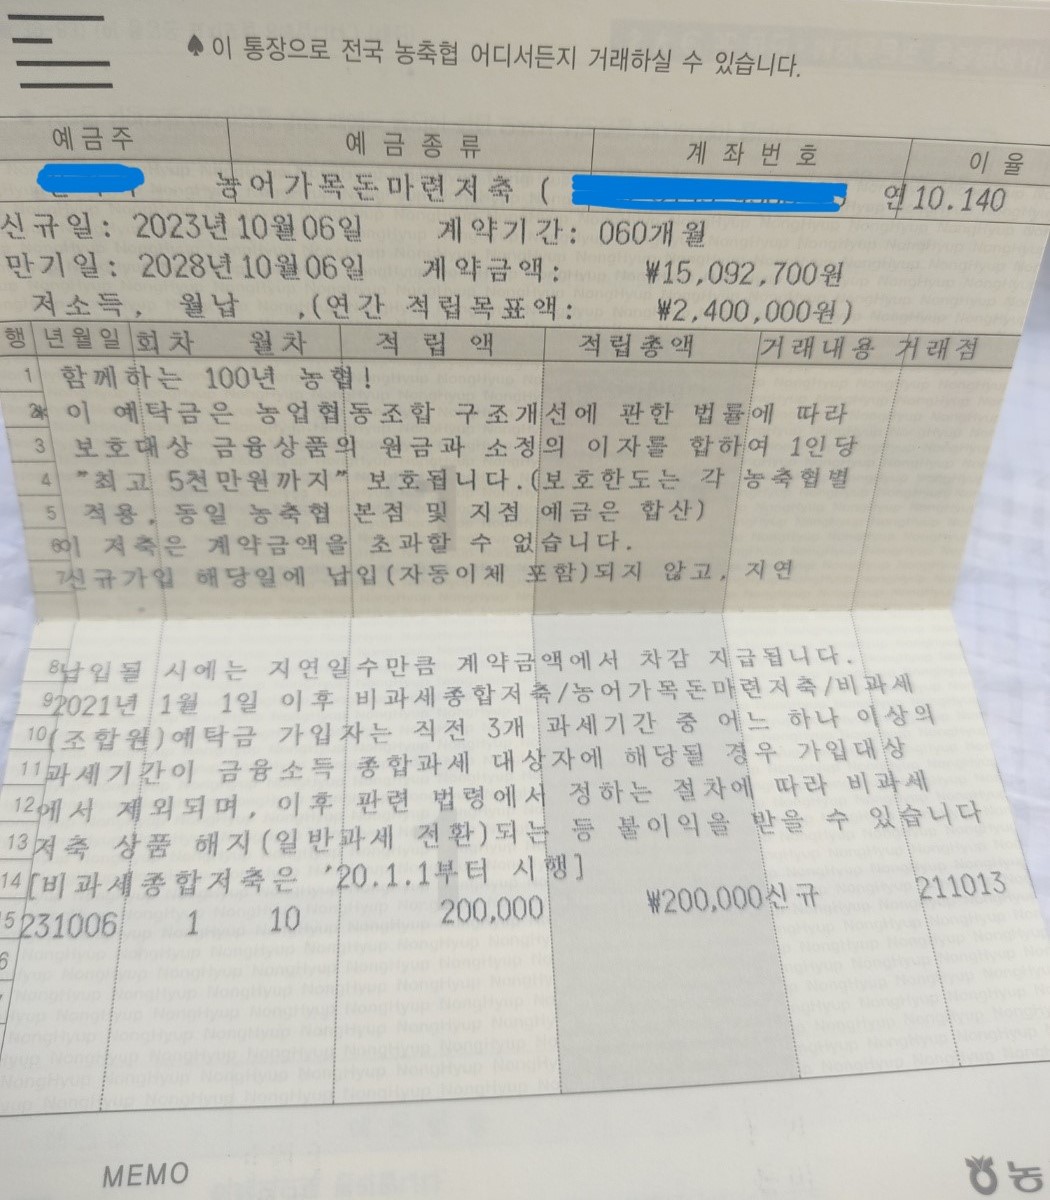 ♠이 통장으로 전국 농축협 어디서든지 거래하실 수 있습니다.
예금주 예금종류 계좌번호 이율
농어가목돈마련저축 ( 연10.140
신규일: 2023년10월06일 계약기간: 060개월
만기일: 2028년10월06일 계약금액: ₩15,092,700원
저소득, 월납 ,(연간 적립목표액: ₩2,400,000원)
행 년월일 회차 월차 적립액 적립총액 거래내용 거래점
1 함께하는 100년 농협!
2* 이 예탁금은 농업협동조합 구조개선에 관한 법률에 따라
3 보호대상 금융상품의 원금과 소정의 이자를 합하여 1인당
4 "최고 5천만원까지" 보호됩니다.(보호한도는 각 농축협별
5 적용, 동일 농축협 본점 및 지점 예금은 합산)
6이 저축은 계약금액을 초과할 수 없습니다.
7신규가입 해당일에 납입(자동이체 포함)되지 않고, 지연
8납입될 시에는 지연일수만큼 계약금액에서 차감 지급됩니다.
9 2021년 1월 1일 이후 비과세종합저축/농어가목돈마련저축/비과세
10 (조합원)예탁금 가입자는 직전 3개 과세기간 중 어느 하나 이상의
11 과세기간이 금융소득 종합과세 대상자에 해당될 경우 가입대상
12 에서 제외되며, 이후 관련 법령에서 정하는 절차에 따라 비과세
13 저축 상품 해지(일반과세 전환)되는 등 불이익을 받을 수 있습니다
14 [비과세종합저축은 '20.1.1부터 시행]
5 231006 1 10 200,000 ₩200,000신규 211013
6
MEMO 농